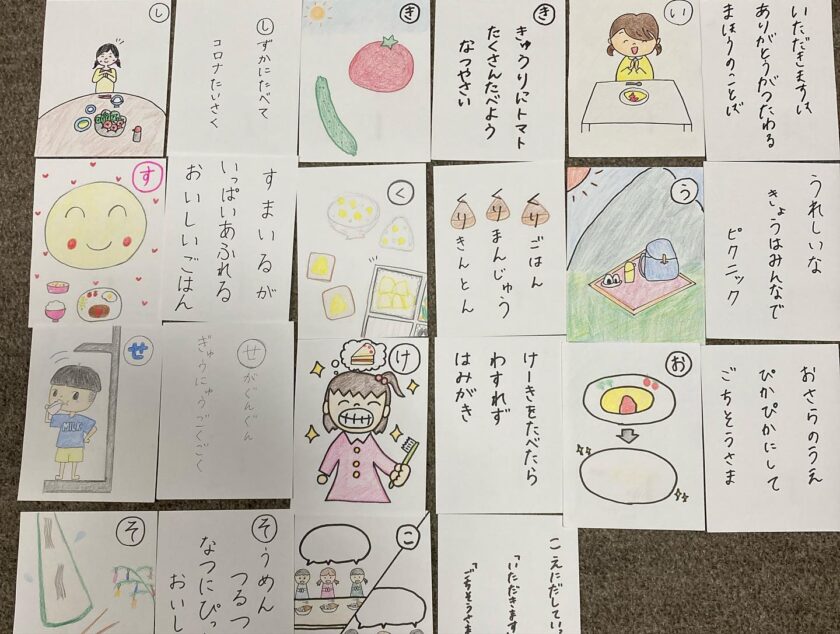 い
いただきますは
ありがとうがつたわる
まほうのことば
き
きゅうりにトマト
たくさんたべよう
なつやさい
し
しずかにたべて
コロナたいさく
う
うれしいな
きょうはみんなで
ピクニック
く
くりごはん
くりまんじゅう
くりきんとん
す
すまいるが
いっぱいあふれる
おいしいごはん
お
おさらのうえ
ぴかぴかにして
ごちそうさま
け
けーきをたべたら
わすれず
はみがき
せ
MILK
せがぐんぐん
ぎゅうにゅうごくごく
こ
こえにだしてい
「いただきます
「ごちそうさま
そ
そうめん
つるつ
なつにぴっ
おいし